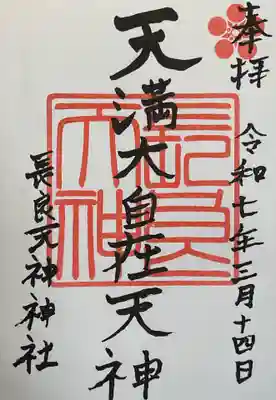 奉拝
令和七年三月十四日
天満大自在天神
長良天神
長良天神神社